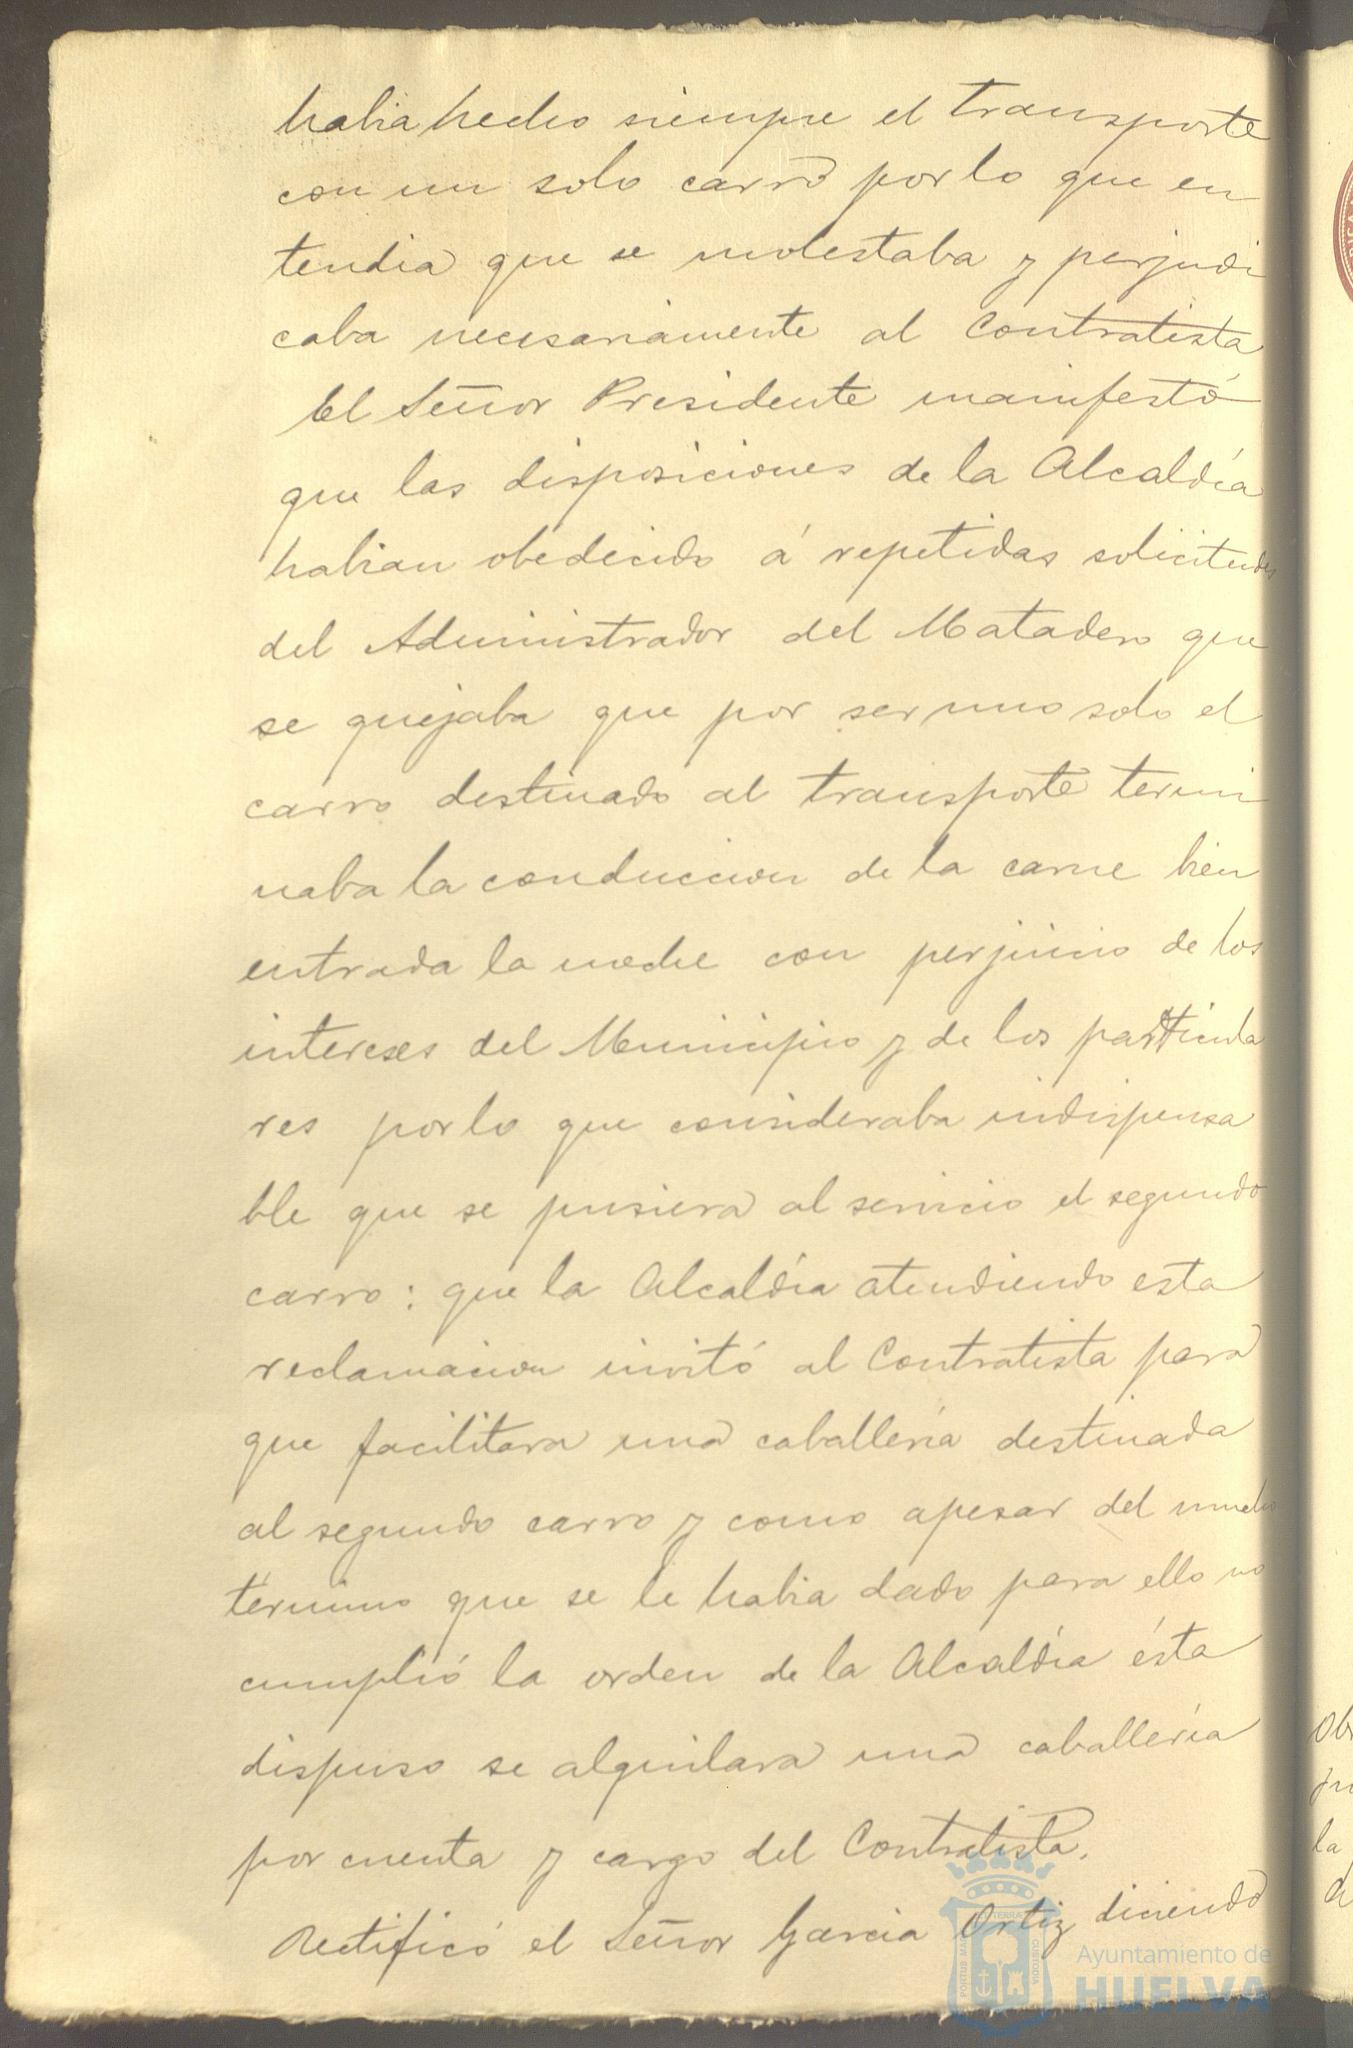 habia hecho siempre el transporte
con un solo carro por lo que en
tendia que se molestaba y perjudi
caba necesariamente al Contratista
El Señor Presidente manifestó
que las disposiciones de la Alcaldía
habian obedecido á repetidas solicitudes
del Administrador del Matadero que
se quejaba que por ser uno solo el
carro destinado al transporte termi
naba la conduccion de la carne bien
entrada la noche con perjuicio de los
intereses del Municipio y de los particula
res por lo que consideraba indispensa
ble que se pusiera al servicio el segundo
carro: que la Alcaldía atendiendo esta
reclamacion invitó al Contratista para
que facilitara una caballería destinada
al segundo carro y como apesar del mucho
término que se le habia dado para ello no
cumplió la orden de la Alcaldía ésta
dispuso se alquilara una caballería
por cuenta y cargo del Contratista.
Rectificó el Señor Garcia Ortiz diciendo
Ayuntamiento de
HUELVA